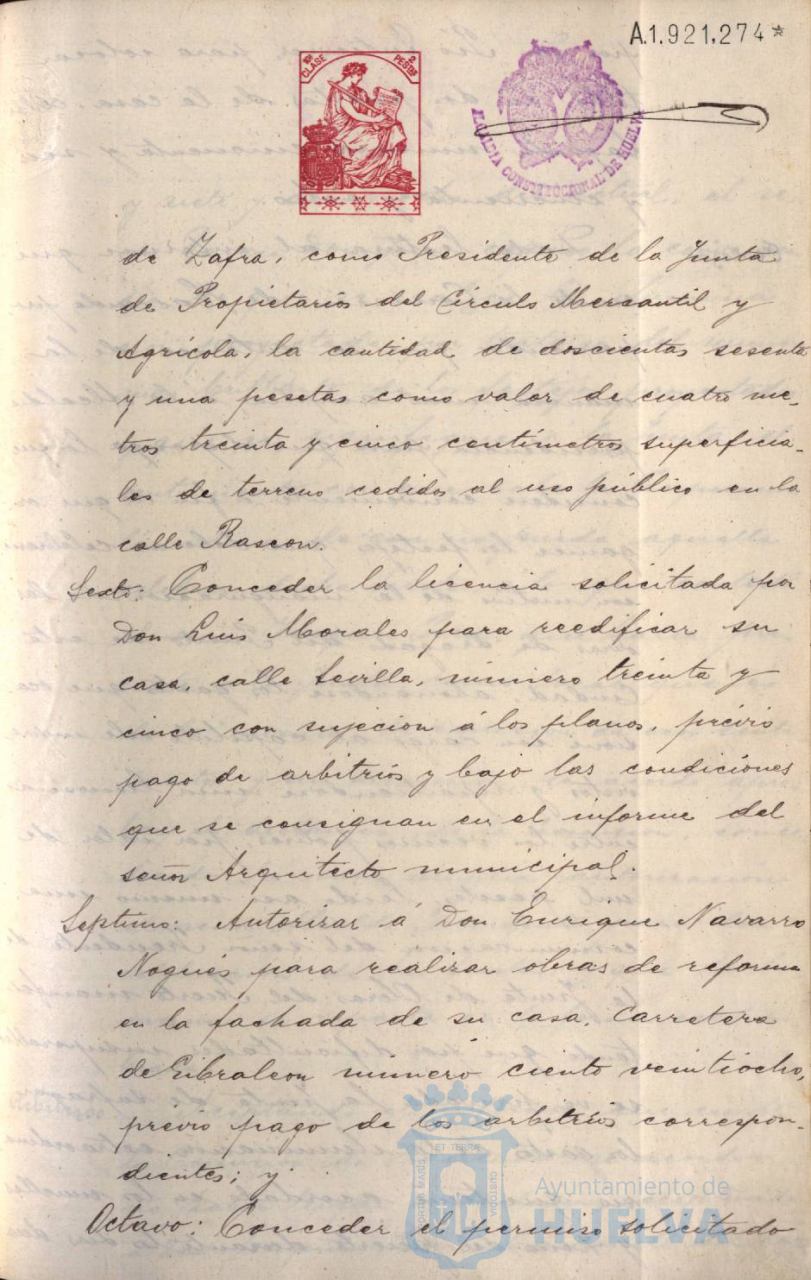 A.1.921.274*
10ª CLASE 2 PESTAS
ALCALDIA CONSTITUCIONAL DE HUELVA
de Zafra, como Presidente de la Junta
de Propietarios del Círculo Mercantil y
Agrícola, la cantidad de doscientas sesenta
y una pesetas como valor de cuatro me-
tros treinta y cinco centímetros superficia-
les de terreno cedidos al uso público en la
calle Rascon.
Sexto: Conceder la licencia solicitada por
Don Luis Morales para reedificar su
casa, calle Sevilla, número treinta y
cinco con sujecion á los planos, prévio
pago de arbitrios y bajo las condiciones
que se consignan en el informe del
señor Arquitecto municipal.
Septimo: Autorizar á Don Enrique Navarro
Nogués para realizar obras de reforma
en la fachada de su casa, Carretera
de Gibraleon número ciento veintiocho,
prévio pago de los arbitrios correspon-
dientes; y
Octavo: Conceder el permiso solicitado
PORTUS MARIS ET TERRÆ CUSTODIA
Ayuntamiento de
HUELVA